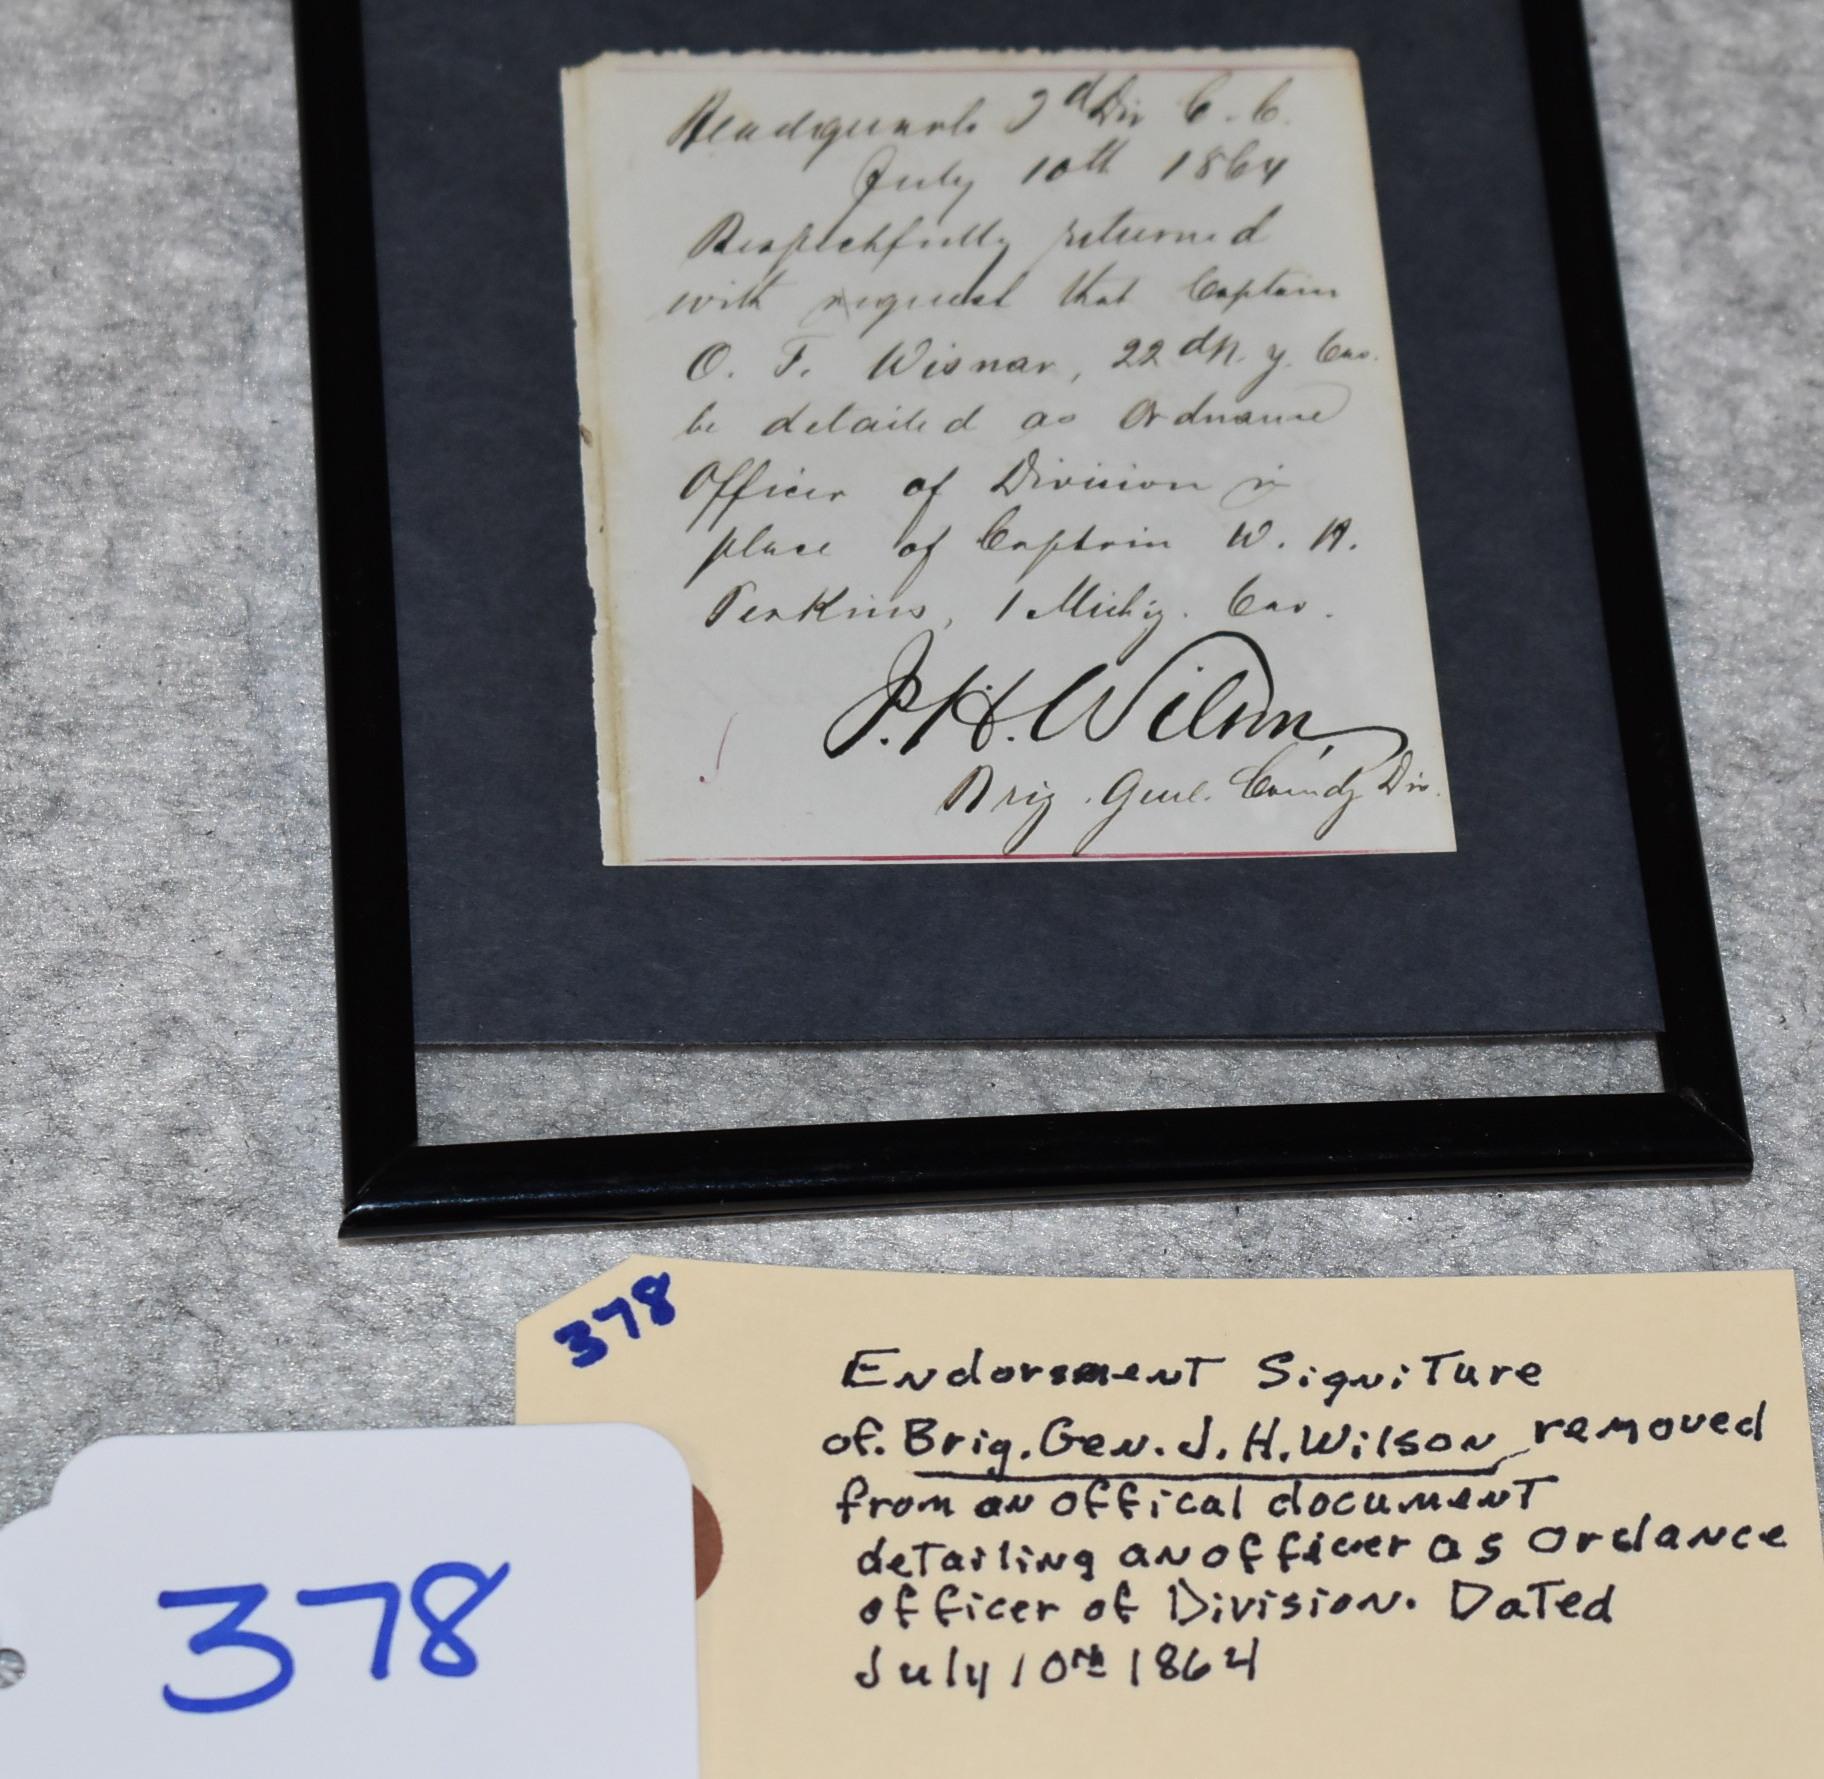 Headquarts 3d Div C. C.
July 10th 1864
Respectfully returned
with request that Captain
O. F. Wisnar, 22d N. Y. Cav.
be detailed as Ordnance
Officer of Division in
place of Captain W. H.
Perkins, 1 Michig. Cav.
J. H. Wilson,
Brig. Genl. Comdg Div.
378
Endorsment Signiture
of. Brig. Gen. J. H. Wilson removed
from an offical document
detailing an officer as Ordance
officer of Division. Dated
July 10th 1864
378